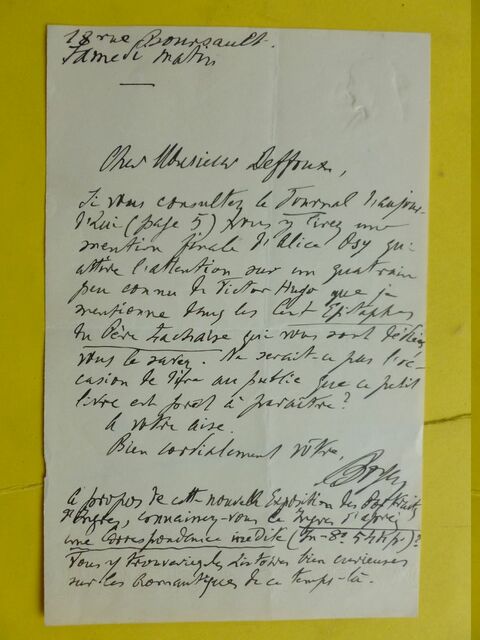 18 rue Boursault.
Samedi matin
Cher Monsieur Deffoux,
Si vous consultez le Journal d'aujour-
d'hui (page 5) vous y lirez une
mention finale d'Alice Ozy qui
attire l'attention sur un quatrain
peu connu de Victor Hugo que je
mentionne dans les Cent Epitaphes
du Père Lachaise qui vous sont dédiées
vous le savez. Ne serait-ce pas l'oc-
casion de dire au public que ce petit
livre est prêt à paraître?
A votre aise.
Bien cordialement vôtre,
A propos de cette nouvelle Exposition des Portraits
d'Ingres, connaissez-vous le Ingres d'après
une Correspondance inédite (In-8°)?
Vous y trouveriez des histoires bien curieuses
sur les Romantiques de ce temps-là.